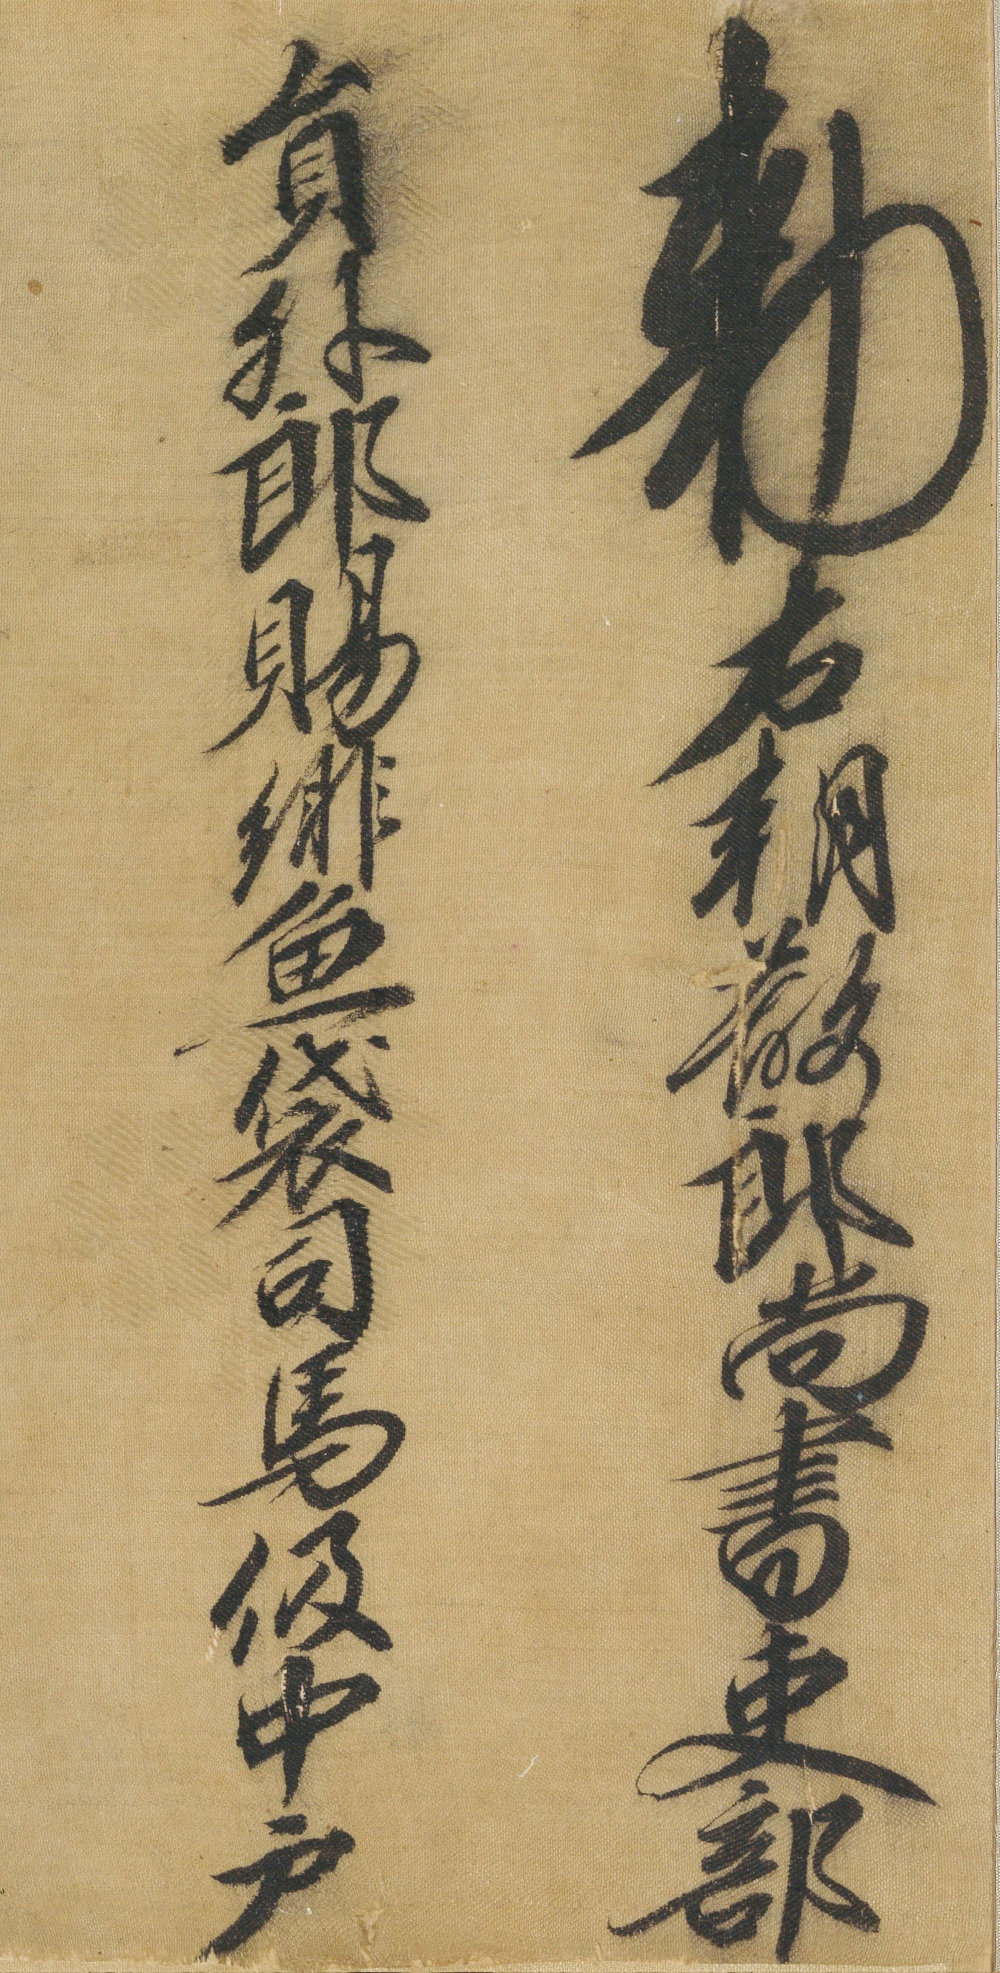 勅右朝散郎尚書吏部
員外郎賜緋魚袋司馬伋中戶